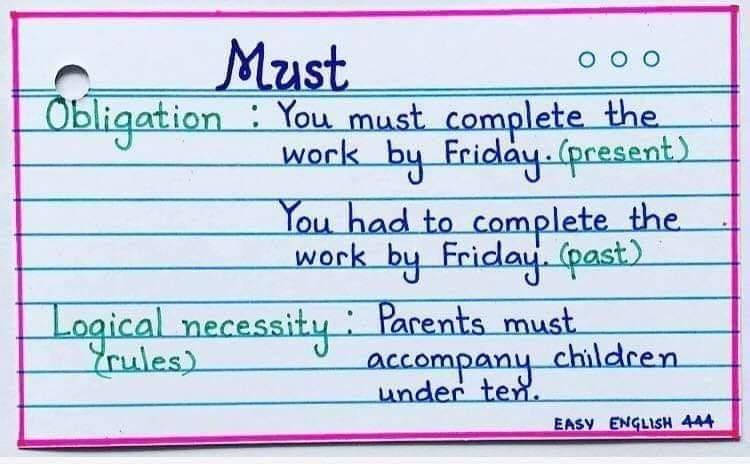 Must
Obligation : You must complete the
work by Friday. (present)
You had to complete the
work by Friday. (past)
Logical necessity : Parents must
(rules) accompany children
under ten.
EASY ENGLISH 444